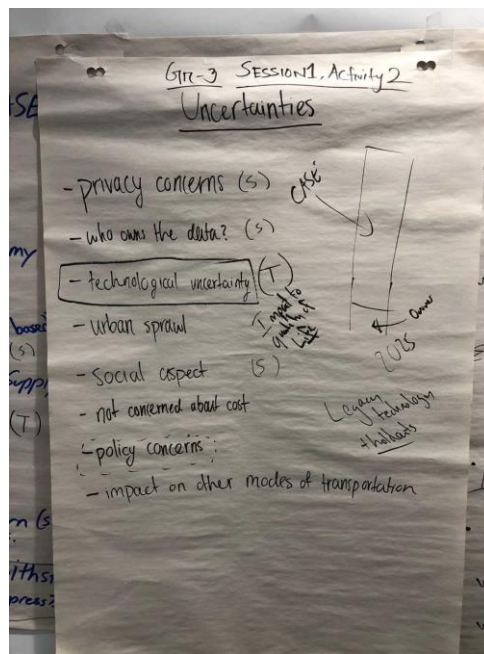 Gr-3 SESSION1, Activity 2
Uncertainties
- privacy concerns (S)
- who owns the data? (S)
- technological uncertainty (T)
- urban sprawl
Impact to
quality of
Life
- social aspect (S)
- not concerned about cost
- policy concerns
- impact on other modes of transportation
CASE
2025
Legacy
technology
+ holdouts
SE
my
based
(S)
(T)